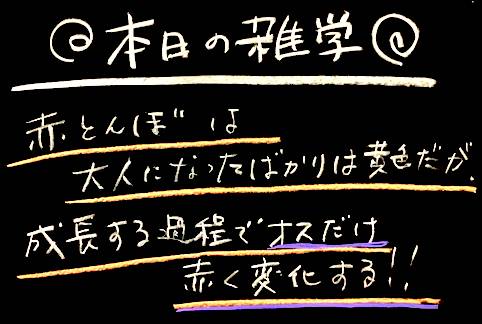 @本日の雑学@
赤とんぼは
大人になったばかりは黄色だが、
成長する過程でオスだけ
赤く変化する!!